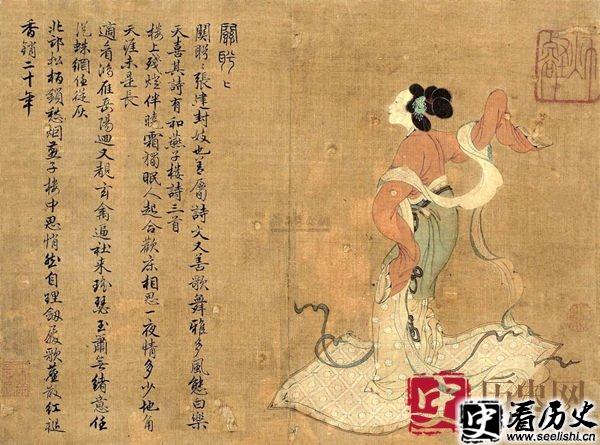 關盻〻
關盻〻張建封妓也善屬詩文又善歌舞雅多風態白樂
天喜其詩有和燕子樓詩三首
樓上殘燈伴曉霜獨眠人起合歡床相思一夜情多少地角
天涯未是長
適看鴻雁岳陽迴又覩玄禽逼社來瑤瑟玉簫無緒意任
從蛛網任從灰
北邙松柏鎖愁烟燕子樓中思悄然自理劔履歌塵散紅袖
香銷二十年
看历史
www.seelishi.cn